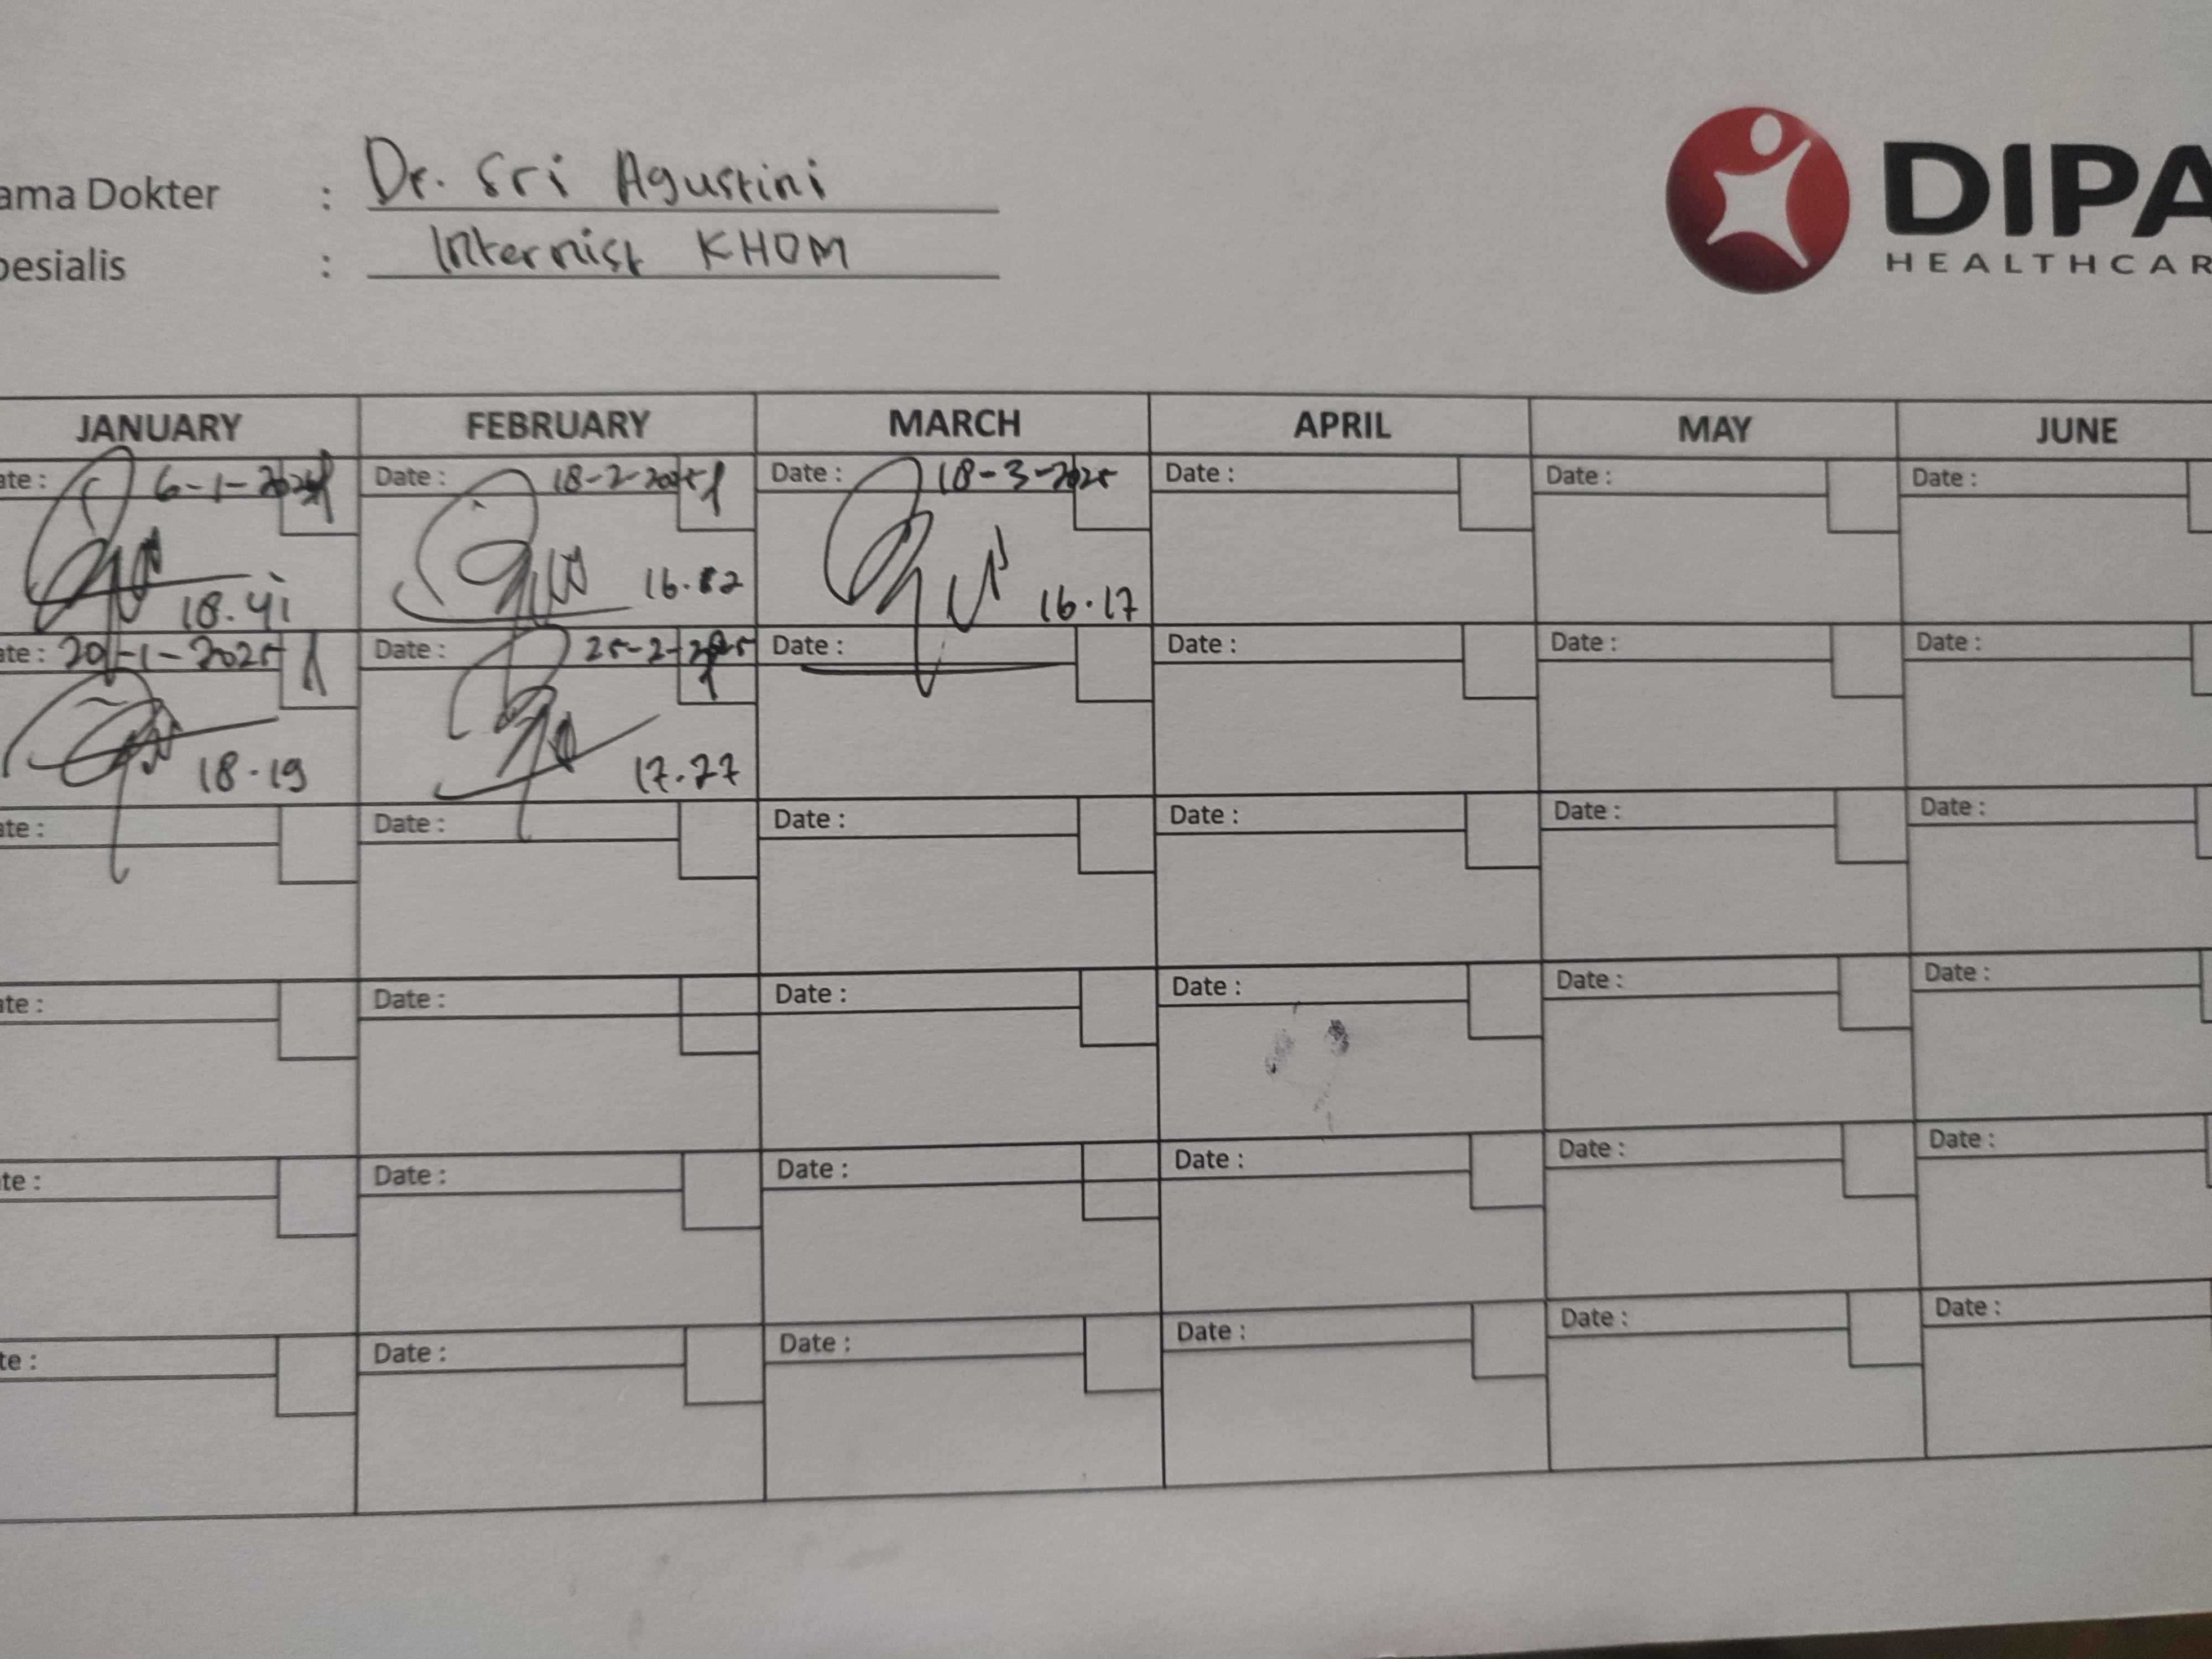 ama Dokter : Dr. Sri Agustini
pesialis : Internist KHOM
DIPA
HEALTHCAR
JANUARY FEBRUARY MARCH APRIL MAY JUNE
ate : 6-1-2025 Date : 18-2-2025 Date : 18-3-2025 Date : Date : Date :
18.41 16.82 16.17
ate : 20-1-2025 Date : 25-2-2025 Date : Date : Date : Date :
18.19 17.27
ate : Date : Date : Date : Date : Date :
ate : Date : Date : Date : Date : Date :
te : Date : Date : Date : Date : Date :
te : Date : Date : Date : Date : Date :